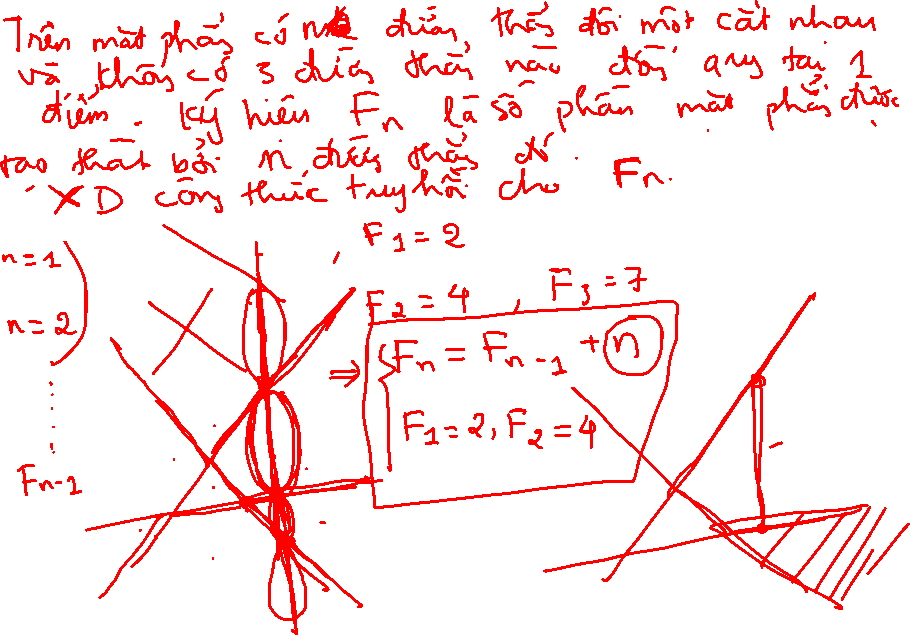 Trên mặt phẳng có n đường thẳng đôi một cắt nhau
và không có 3 đường thẳng nào đồng quy tại 1
điểm. Ký hiệu Fn là số phần mặt phẳng được
tạo thành bởi n đường thẳng đó.
XD công thức truy hồi cho Fn.
n=1
F1 = 2
n=2
F2 = 4, F3 = 7
⇒ Fn = Fn-1 + n
F1=2, F2=4
Fn-1